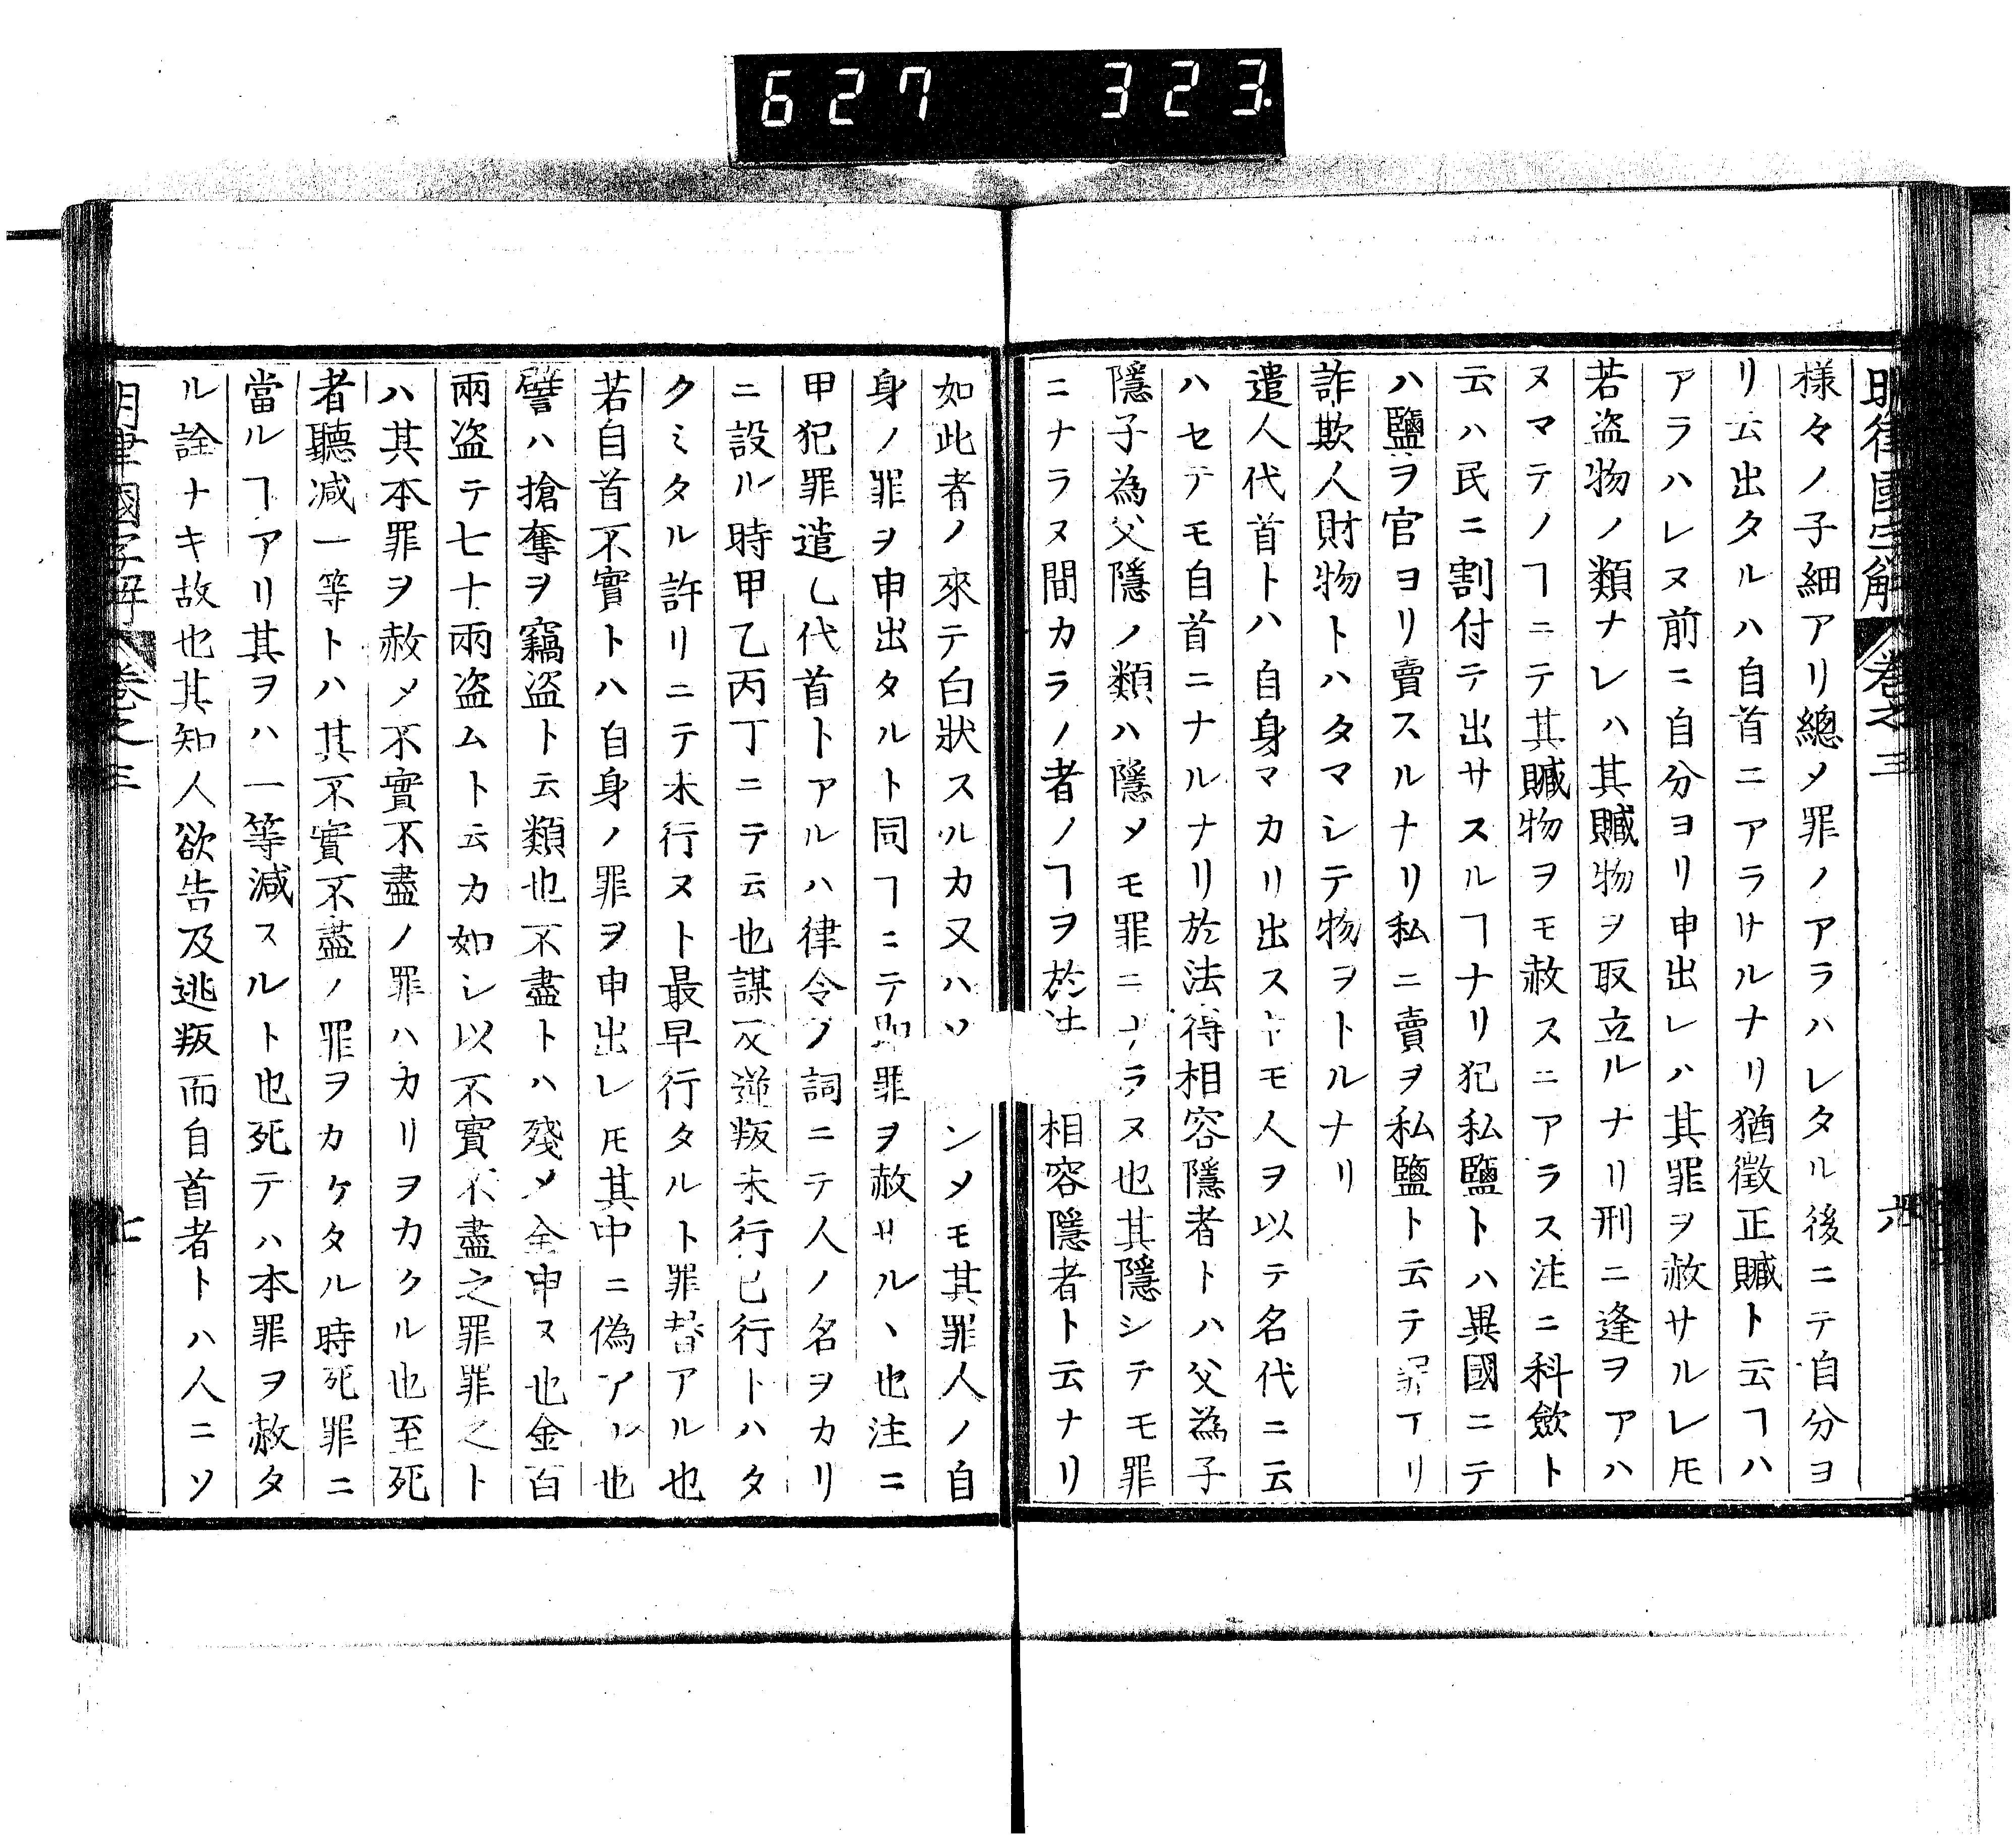 627 323
明律國字解 卷之三 六
様々ノ子細アリ總メ罪ノアラハレタル後ニテ自分ヨ
リ云出タルハ自首ニアラサルナリ猶徴正贓ト云ヿハ
アラハレヌ前ニ自分ヨリ申出レハ其罪ヲ赦サルレ𪜈
若盗物ノ類ナレハ其贓物ヲ取立ルナリ刑ニ逢ヲアハ
ヌマテノヿニテ其贓物ヲモ赦スニアラス注ニ科斂ト
云ハ民ニ割付テ出サスルヿナリ犯私鹽トハ異國ニテ
ハ鹽ヲ官ヨリ賣スルナリ私ニ賣ヲ私鹽ト云テ罪アリ
詐欺人財物トハタマシテ物ヲトルナリ
遣人代首トハ自身マカリ出ストモ人ヲ以テ名代ニ云
ハセテモ自首ニナルナリ於法得相容隱者トハ父為子
隱子為父隱ノ類ハ隱メモ罪ニナラヌ也其隱シテモ罪
ニナラヌ間カラノ者ノヿヲ於法 相容隱者ト云ナリ
如此者ノ來テ白狀スルカ又ハソ ンメモ其罪人ノ自
身ノ罪ヲ申出タルト同ヿニテ則罪ヲ赦サルヽ也注ニ
甲犯罪遣乚代首トアルハ律令ノ詞ニテ人ノ名ヲカリ
ニ設ル時甲乙丙丁ニテ云也謀反逆叛未行已行トハタ
クミタル許リニテ未行ヌト最早行タルト罪替アル也
若自首不實トハ自身ノ罪ヲ申出レ𪜈其中ニ偽アル也
譬ハ搶奪ヲ竊盗ト云類也不盡トハ殘メ全申ヌ也金百
兩盗テ七十兩盗ムト云カ如シ以不實不盡之罪罪之ト
ハ其本罪ヲ赦メ不實不盡ノ罪ハカリヲカクル也至死
者聽減一等トハ其不實不盡ノ罪ヲカケタル時死罪ニ
當ルヿアリ其ヲハ一等減スルト也死テハ本罪ヲ赦タ
ル詮ナキ故也其知人欲告及逃叛而自首者トハ人ニソ
明律國字解 卷之三 七